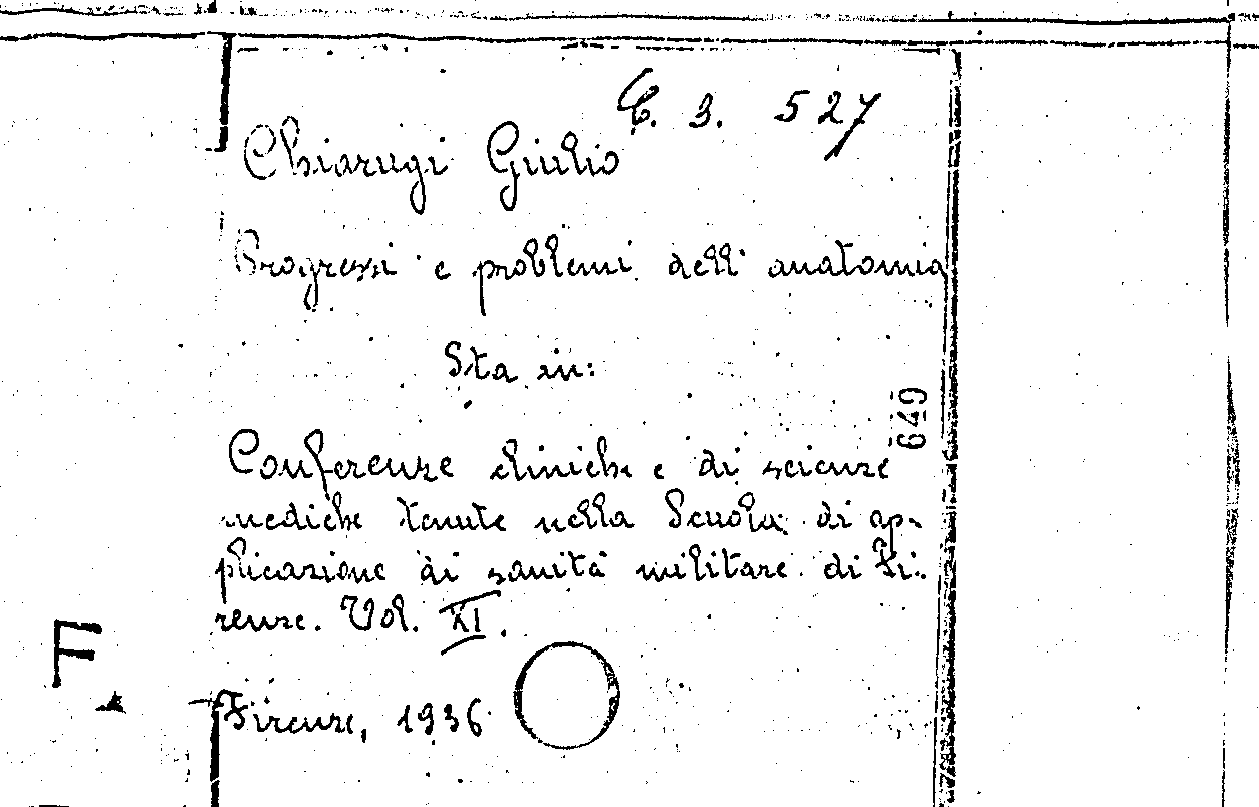 C. 3. 527
Chiarugi Giulio
Progressi e problemi dell' anatomia
Sta in:
649
Conferenze cliniche e di scienze
mediche tenute nella Scuola di ap-
plicazione di sanità militare di Fi-
renze. Vol. XI.
F
Firenze, 1936